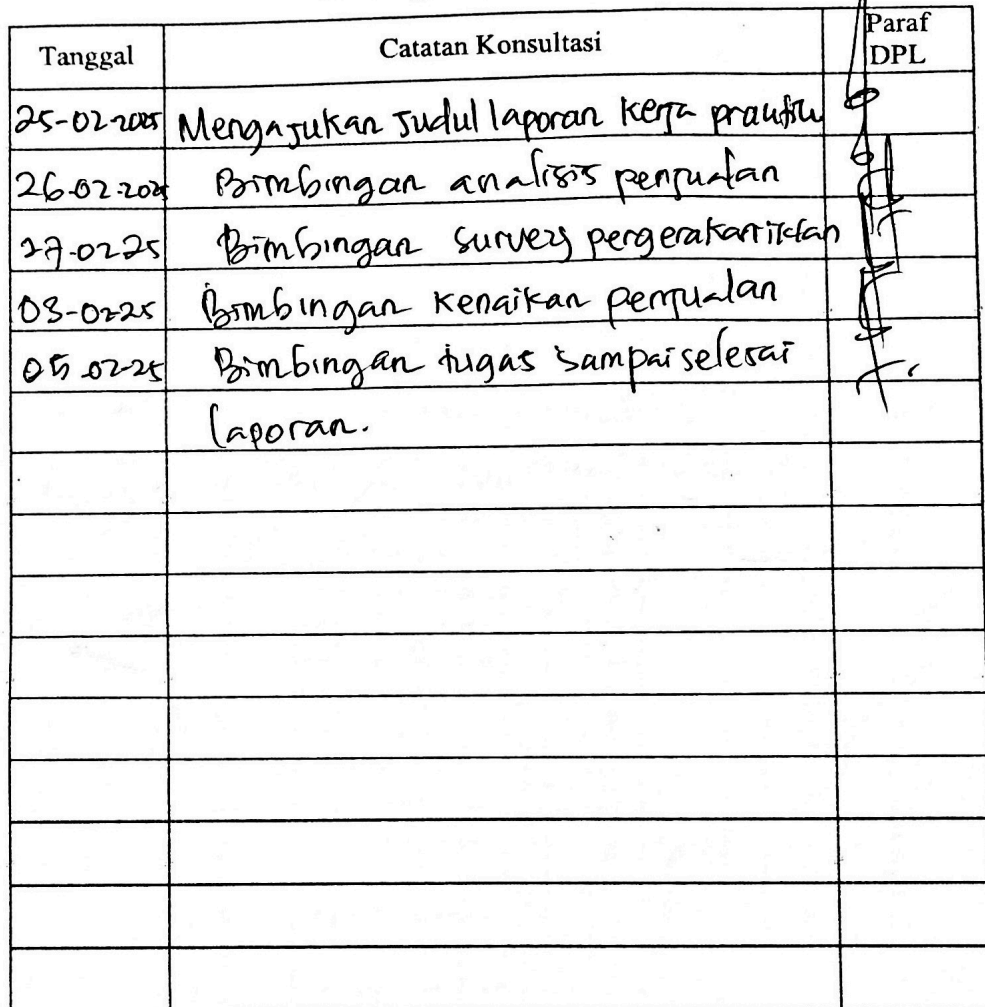 Tanggal Catatan Konsultasi Paraf DPL
25-02-2025 Mengajukan Judul laporan kerja praktik
26-02-2025 Bimbingan analisis penjualan
27-02-25 Bimbingan survey pergerakan iklan
03-02-25 Bimbingan kenaikan penjualan
05-02-25 Bimbingan tugas sampai selesai
laporan.